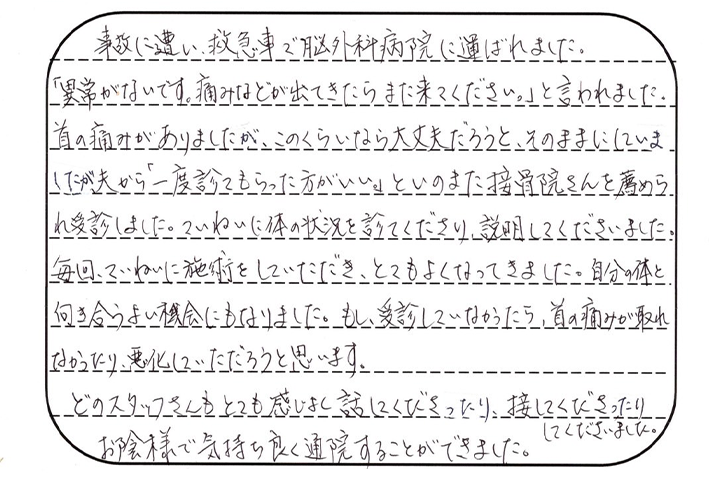 事故に遭い、救急車で脳外科病院に運ばれました。
「異常がないです。痛みなどが出てきたらまた来てください。」と言われました。
首の痛みがありましたが、このくらいなら大丈夫だろうと、そのままにしていま
したが夫から「一度診てもらった方がいい。」といのまた接骨院さんを薦めら
れ受診しました。ていねいに体の状況を診てくださり、説明してくださいました。
毎回、ていねいに施術をしていただき、とてもよくなってきました。自分の体と
向き合うよい機会にもなりました。もし、受診していなかったら、首の痛みが取れ
なかったり、悪化していただろうと思います。
どのスタッフさんもとても感じよく話してくださったり、接してくださったり
してくださいました。
お陰様で気持ち良く通院することができました。